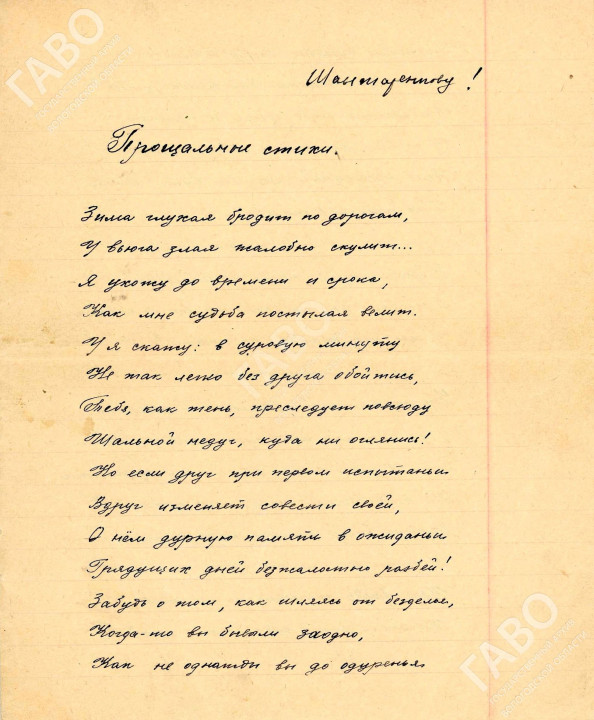 Шантаренкову!
Прощальные стихи.
Зима глухая бродит по дорогам,
И вьюга злая жалобно скулит...
Я ухожу до времени и срока,
Как мне судьба постылая велит.
И я скажу: в суровую минуту
Не так легко без друга обойтись,
Тебя, как тень, преследует повсюду
Шальной недуг, куда ни оглянись!
Но если друг при первом испытаньи
Вдруг изменяет совести своей,
О нём дурную память в ожиданьи
Грядущих дней безжалостно разбей!
Забудь о том, как шляясь от безделья,
Когда-то вы бывали заодно,
Как не однажды вы до одуренья
ГАВО
ГАВО
ГАВО